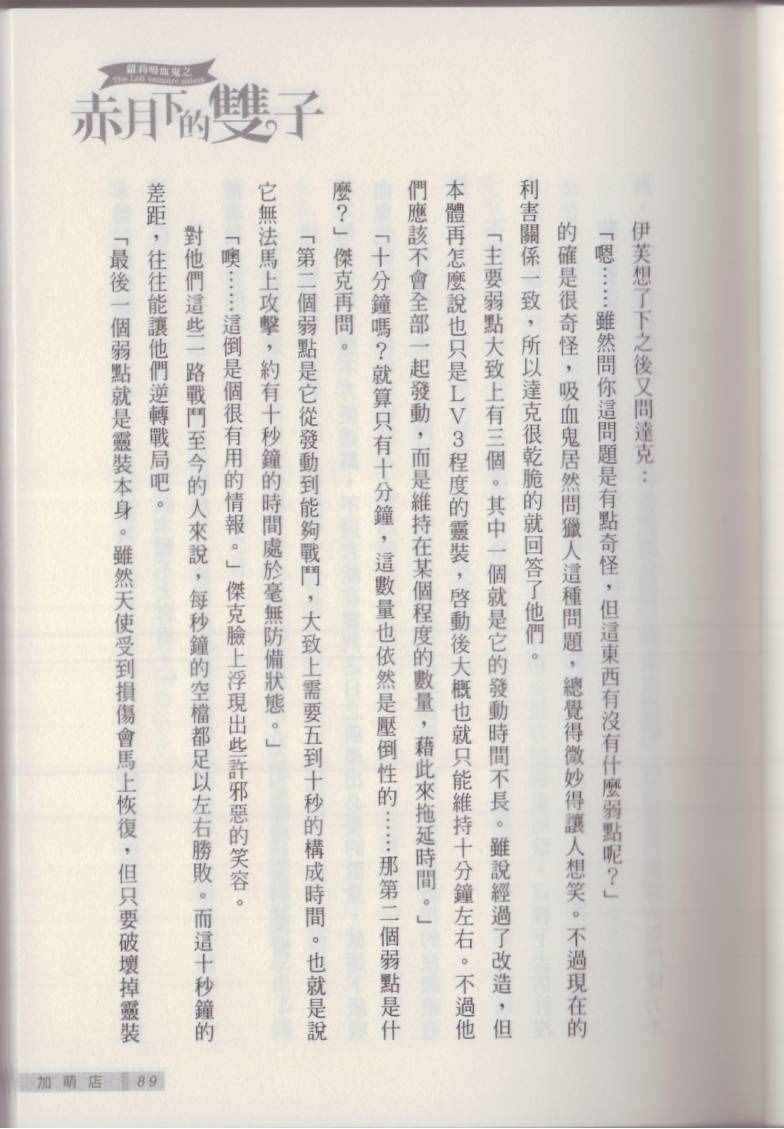 蘿莉吸血鬼之
The Loli vampire sisters
赤月下的雙子
伊芙想了下之後又問達克：
「嗯……雖然問你這問題是有點奇怪，但這東西有沒有什麼弱點呢？」
的確是很奇怪，吸血鬼居然問獵人這種問題，總覺得微妙得讓人想笑。不過現在的
利害關係一致，所以達克很乾脆的就回答了他們。
「主要弱點大致上有三個。其中一個就是它的發動時間不長。雖說經過了改造，但
本體再怎麼說也只是LV3程度的靈裝，啓動後大概也就只能維持十分鐘左右。不過他
們應該不會全部一起發動，而是維持在某個程度的數量，藉此來拖延時間。」
「十分鐘嗎？就算只有十分鐘，這數量也依然是壓倒性的……那第二個弱點是什
麼？」傑克再問。
「第二個弱點是它從發動到能夠戰鬥，大致上需要五到十秒的構成時間。也就是說
它無法馬上攻擊，約有十秒鐘的時間處於毫無防備狀態。」
「噢……這倒是個很有用的情報。」傑克臉上浮現出些許邪惡的笑容。
對他們這些一路戰鬥至今的人來說，每秒鐘的空檔都足以左右勝敗。而這十秒鐘的
差距，往往能讓他們逆轉戰局吧。
「最後一個弱點就是靈裝本身。雖然天使受到損傷會馬上恢復，但只要破壞掉靈裝
加萌店 89